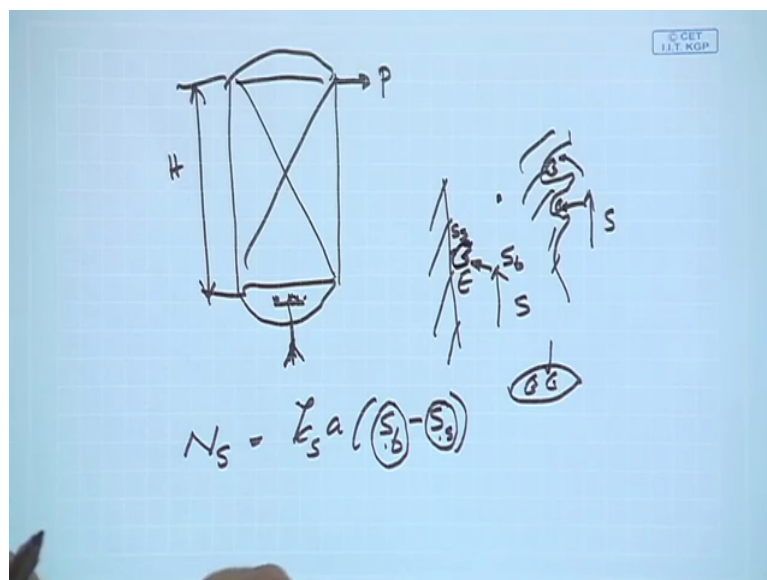 © CET
I.I.T. KGP
P
H
S
Ss
Sb
E
S
Ns = ks a (Sb - Ss)